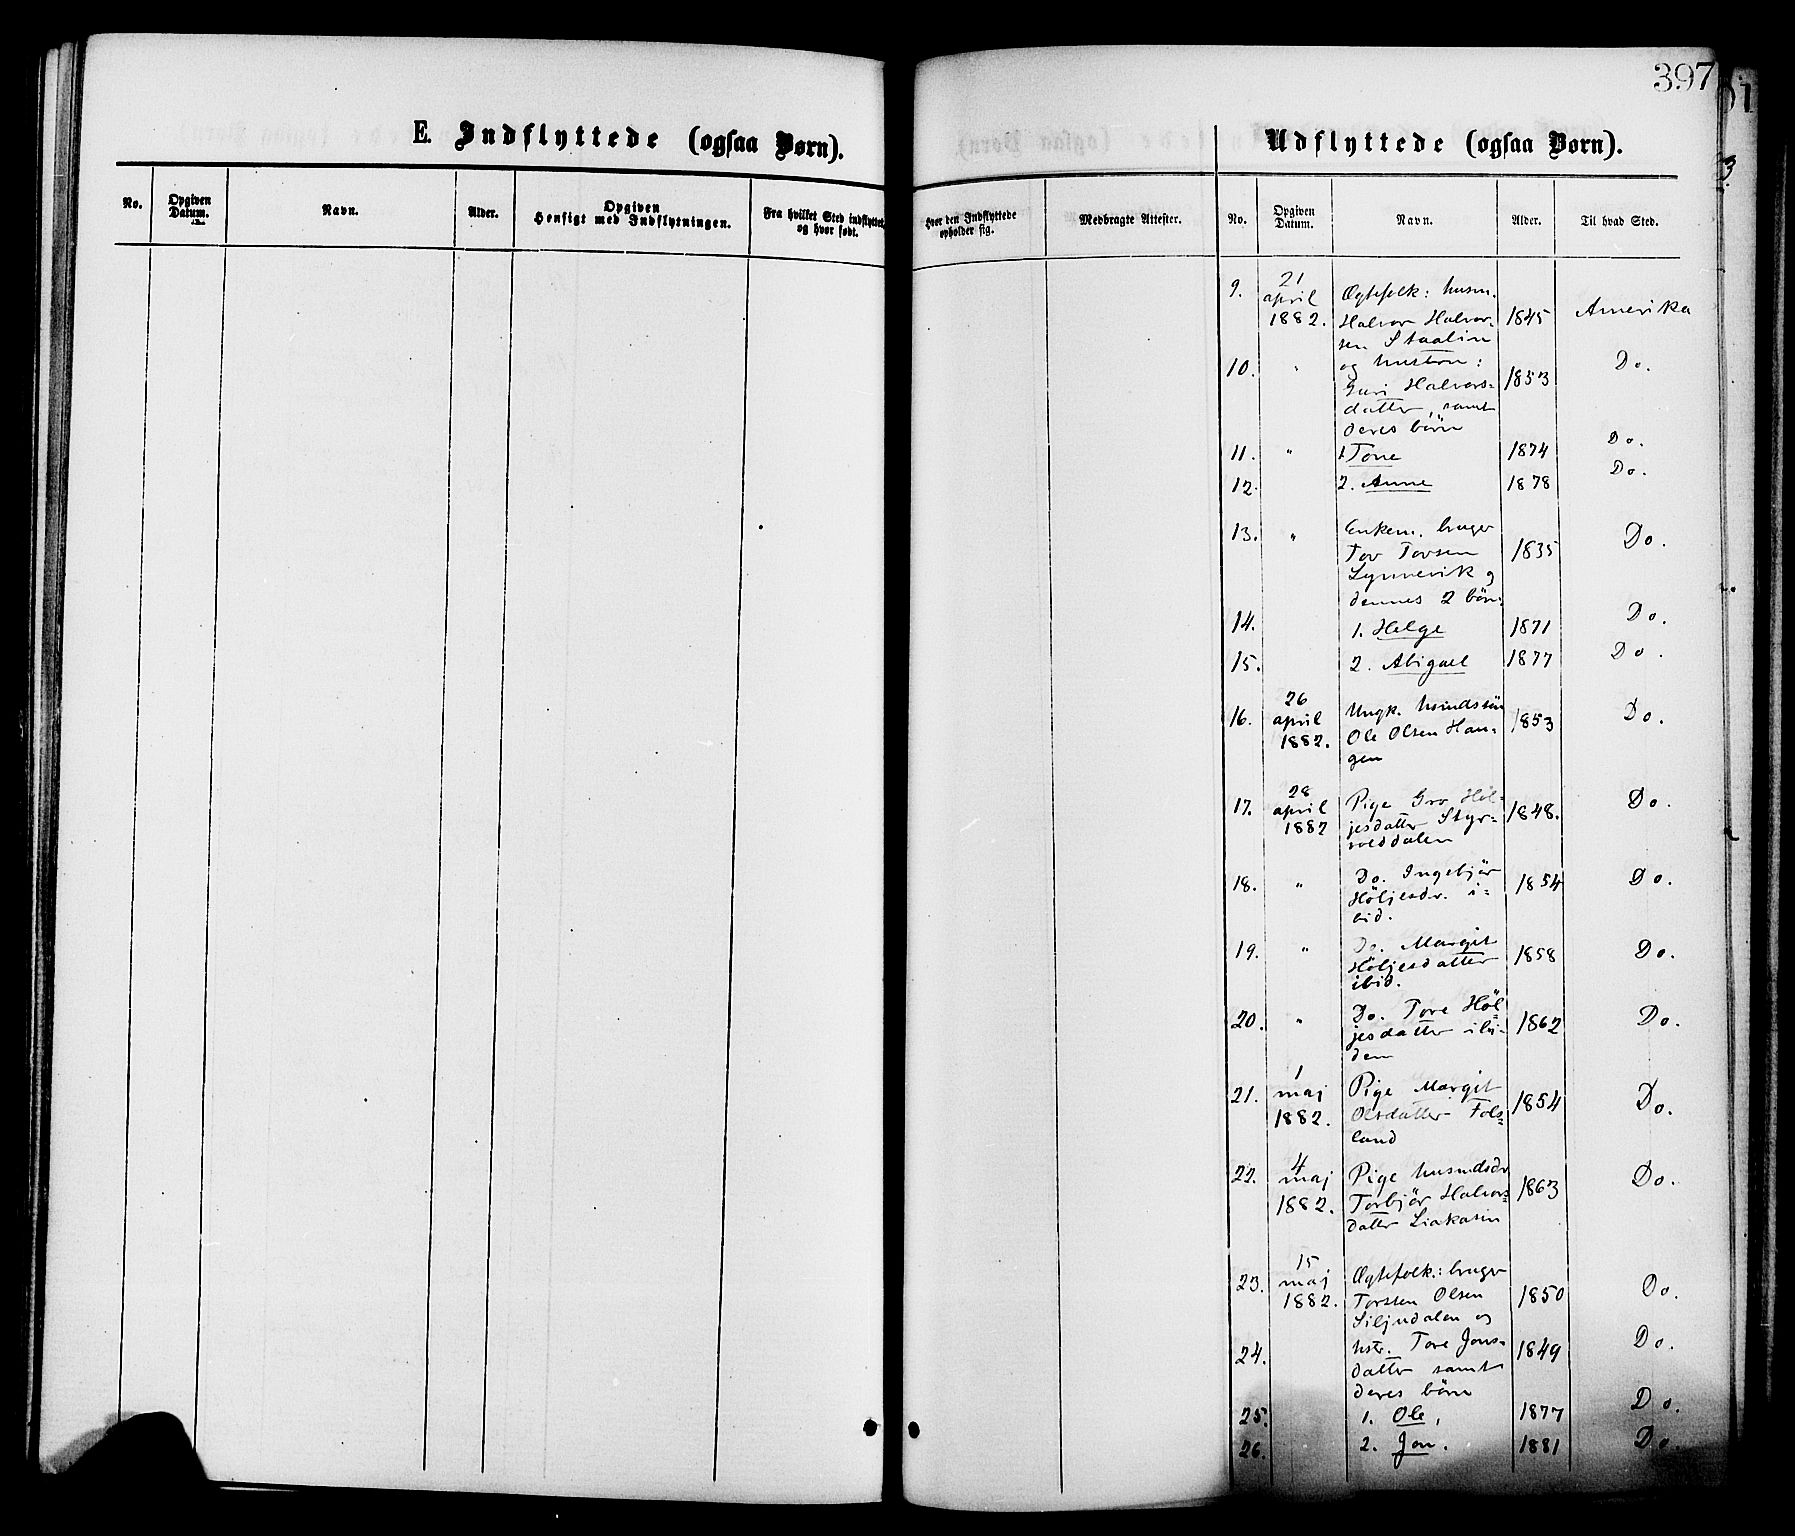 397
E. Indflyttede (ogsaa Børn).
No.
Opgiven Datum.
Navn.
Alder.
Opgiven Hensigt med Indflytningen.
Fra hvilket Sted indflyttet, og hvor født.
Hvor den Indflyttede opholder sig.
Medbragte Attester.
Udflyttede (ogsaa Børn).
No.
Opgiven Datum.
Navn.
Alder.
Til hvad Sted.
9. 21 april 1882. Ægtefolk: husm. 1845 Amerika
Halvor Halvor-
sen Staalin
10. " og hustru: 1853 Do.
Guri Halvors-
datter, samt
deres börn
11. " 1 Tone 1874 Do.
12. 2. Anne 1878 Do.
13. " Enkem. bruger 1835 Do.
Tov Tovsen
Lynnevik og
dennes 2 börn
14. 1. Helge 1871 Do.
15. 2. Abigael 1877 Do.
16. 26 april 1882. Ungk. husmdssön 1853 Do.
Ole Olsen Hau-
gen
17. 28 april 1882 Pige Gro Höl- 1848. Do.
jesdatter Styr-
volddalen
18. " Do. Ingebjör 1854 Do.
Höljesdr. i-
bid.
19. " Do. Margit 1858 Do.
Höljesdatter
ibid.
20. " Do. Tore Höl- 1862 Do.
jesdatter ibi-
dem
21. 1 maj 1882. Pige Margit 1854 Do.
Olsdatter Fols-
land
22. 4 maj 1882. Pige husmdsdr 1863 Do.
Torbjör Halvors-
datter Liakasin
23. 15 maj 1882. Ægtefolk: bruger 1850 Do.
Torsten Olsen
Siljudalen og
24. hstr. Tore Jons- 1849 Do.
datter samt
deres börn
25. 1. Ole, 1877 Do.
26. 2. Jon. 1881 Do.